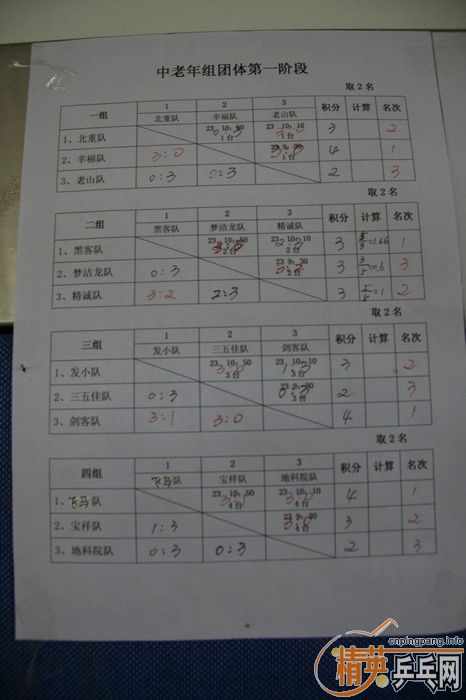 中老年组团体第一阶段
取2名
一组 1 北重队 2 幸福队 3 老山队 积分 计算 名次
1、北重队 23 10:50 1台 0:3 23 10:10 1台 3:0 3 2
2、幸福队 3:0 23 9:30 1台 3:0 4 1
3、老山队 0:3 0:3 2 3
取2名
二组 1 黑客队 2 梦洁龙队 3 精诚队 积分 计算 名次
1、黑客队 23 10:50 2台 3:0 23 10:10 2台 2:3 3 5/3=1.66 1
2、梦洁龙队 0:3 23 9:30 2台 3:2 3 3/5=0.6 3
3、精诚队 3:2 2:3 3 5/5=1 2
取2名
三组 1 发小队 2 三五佳队 3 剑客队 积分 计算 名次
1、发小队 23 10:50 3台 3:0 23 10:10 3台 1:3 3 2
2、三五佳队 0:3 23 9:30 3台 0:3 2 3
3、剑客队 3:1 3:0 4 1
取2名
四组 1 飞马队 2 宝样队 3 地科院队 积分 计算 名次
1、飞马队 23 10:50 4台 23 10:10 4台 3:0 4 1
2、宝样队 1:3 23 9:30 4台 3:0 3 2
3、地科院队 0:3 0:3 2 3
cnpingpang.info
精英乒乓网